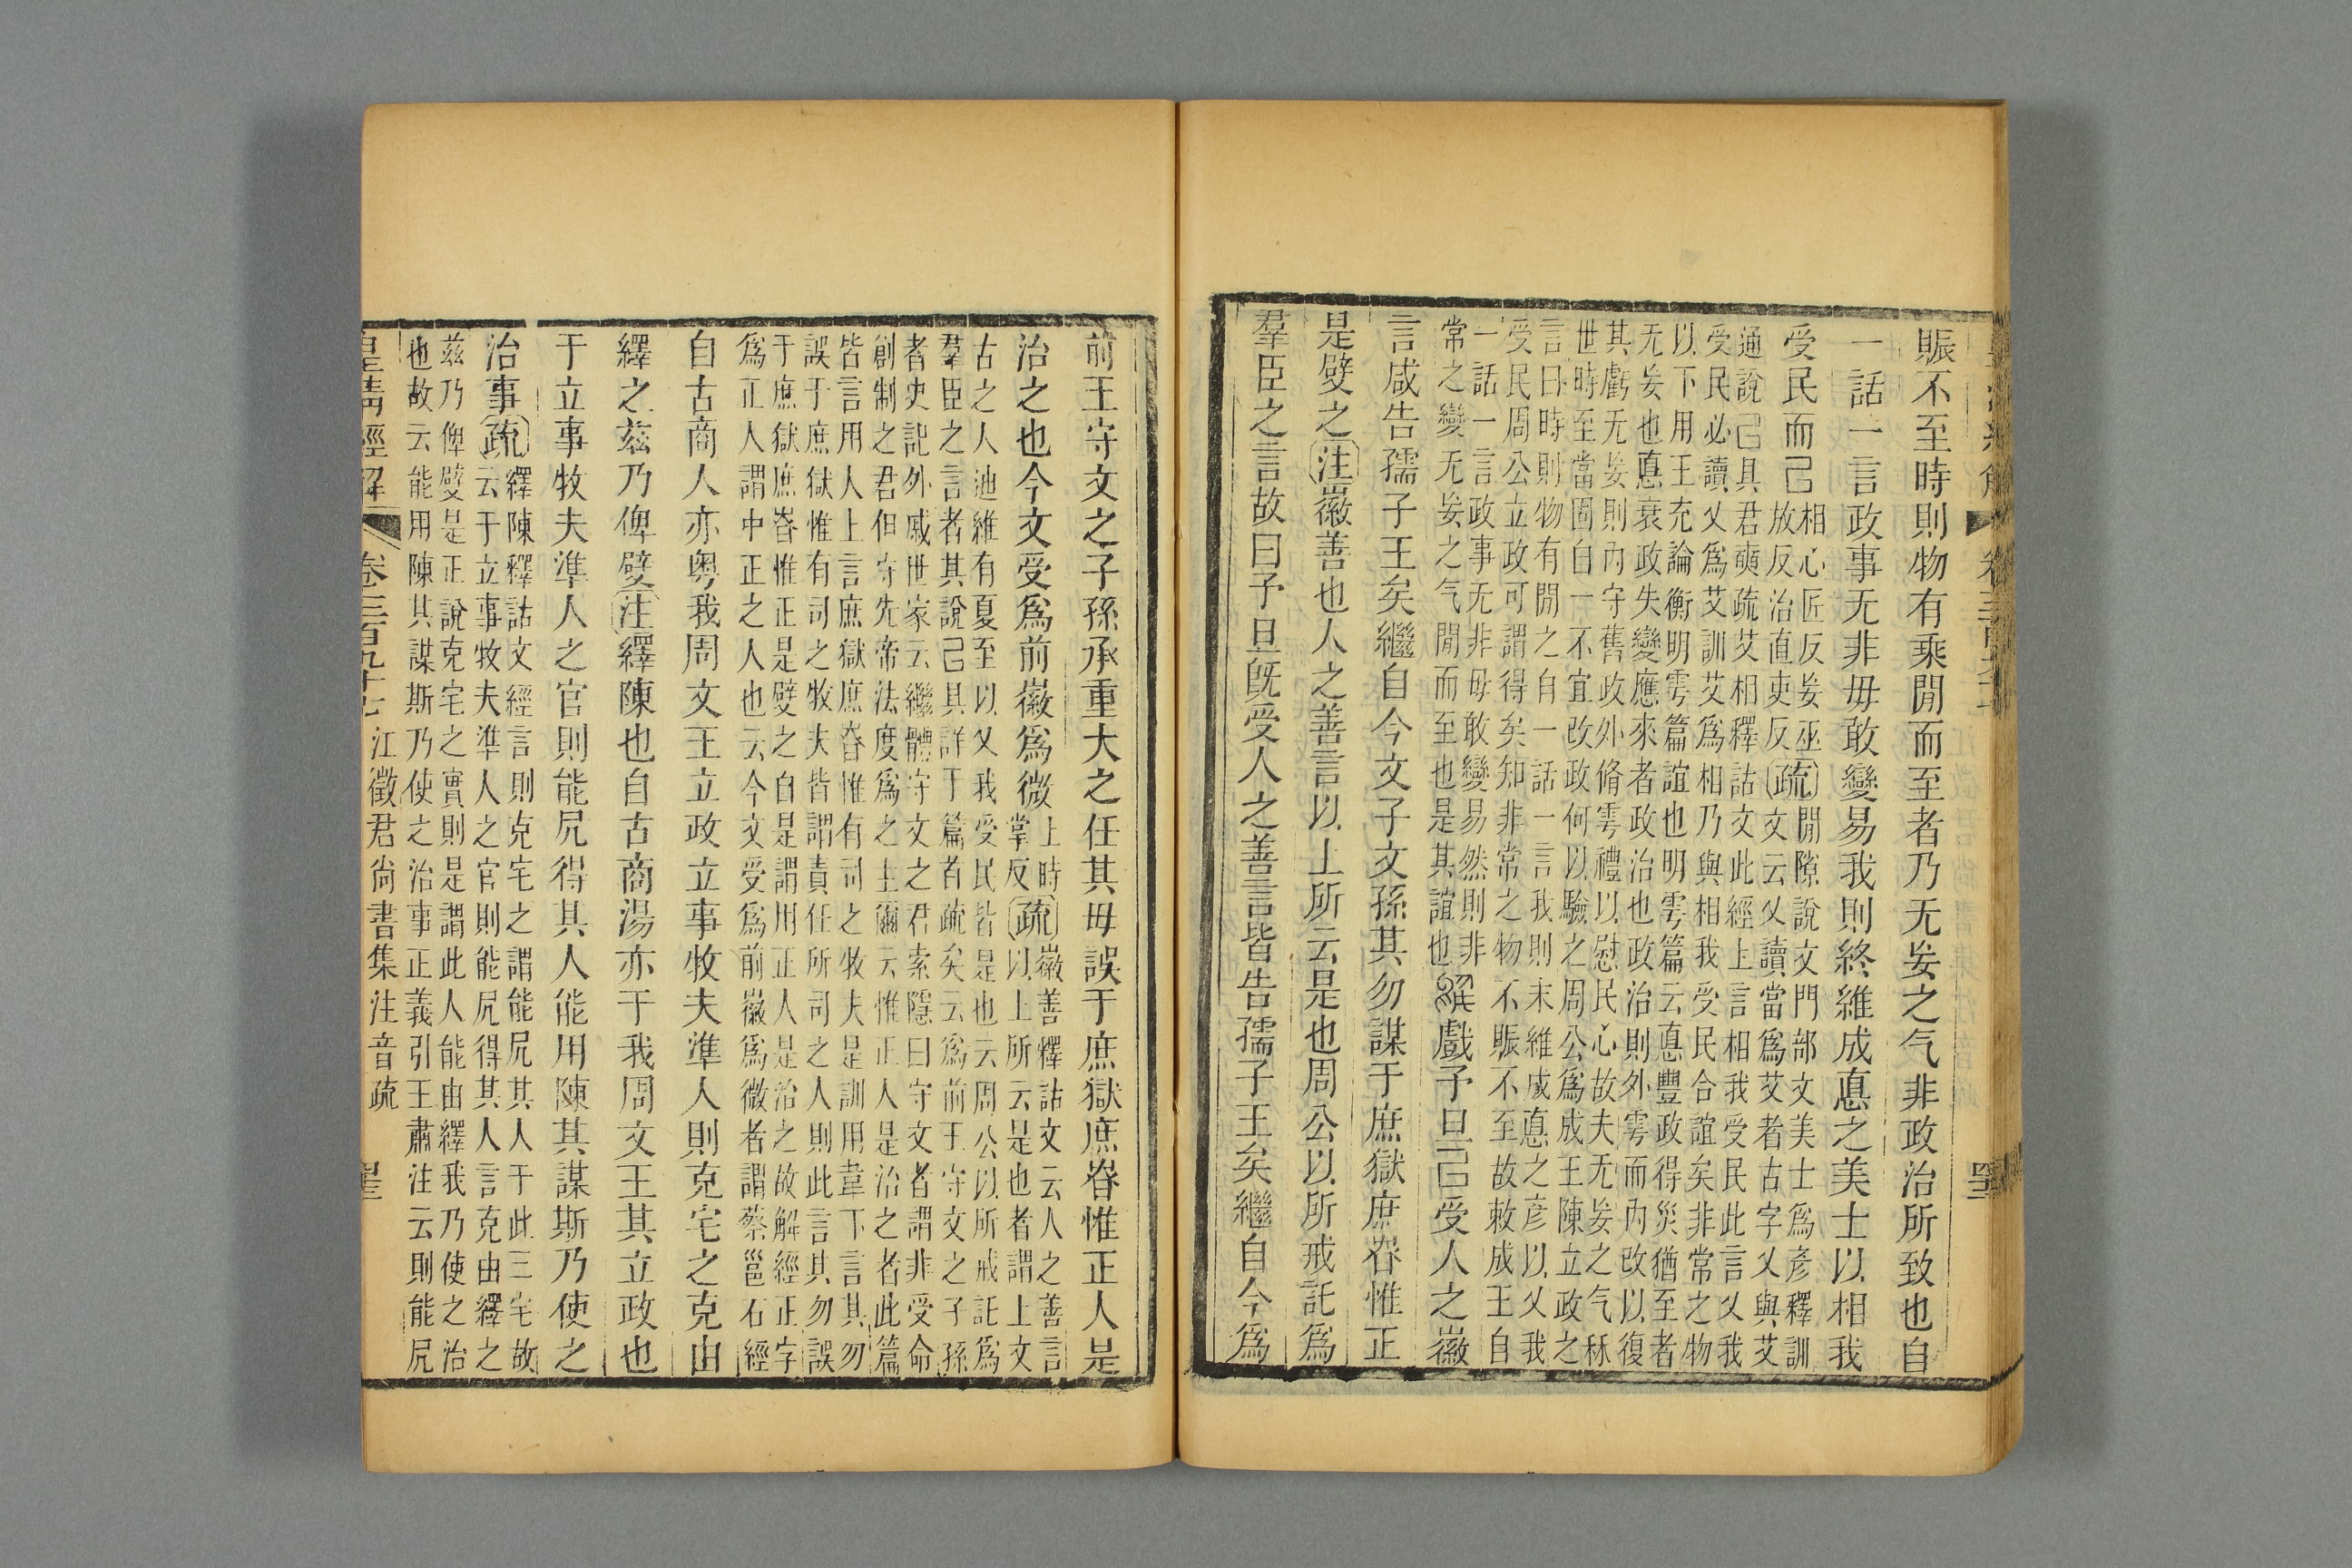 賑不至時則物有乘閒而至者乃无妄之气非政治所致也自
一話一言政事无非毋敢變易我則終維成惪之美士以相我
受民而己相心匠反妄巫
放反治直吏反疏閒隙說文門部文美士爲彥釋訓
文云乂讀當爲艾者古字乂與艾
通說己具君奭疏艾相釋詁文此經上言相我受民此言乂我
受民必讀乂爲艾訓艾爲相乃與相我受民合誼矣非常之物
以下用王充論衡明雩篇誼也明雩篇云惪豐政得災猶至者
无妄也惪衰政失變應來者政治也政治則外雩而內改以復
其虧无妄則內守舊政外脩雩禮以慰民心故夫无妄之气秝
世時至當固自一不宜改政何以驗之周公爲成王陳立政之
言曰時則物有閒之自一話一言我則末維成惪之彥以乂我
受民周公立政可謂得矣知非常之物不賑不至故敕成王自
一話一言政事无非毋敢變易然則非
常之變无妄之气閒而至也是其誼也
戲予旦己受人之徽
言咸告孺子王矣繼自今文子文孫其勿謀于庶獄庶昚惟正
是㢸之注徽善也人之善言以上所云是也周公以所戒託爲
羣臣之言故曰予旦旣受人之善言皆告孺子王矣繼自今爲
前王守文之子孫承重大之任其毋誤于庶獄庶昚惟正人是
治之也今文受爲前徽爲微上時
掌反疏徽善釋詁文云人之善言
以上所云是也者謂上文
古之人迪維有夏至以乂我受民皆是也云周公以所戒託爲
羣臣之言者其說己具詳于篇者疏矣云爲前王守文之子孫
者史記外戚世家云繼體守文之君索隱曰守文者謂非受命
創制之君但守先帝法度爲之主爾云惟正人是治之者此篇
皆言用人上言庶獄庶昚惟有司之牧夫是訓用韋下言其勿
誤于庶獄惟有司之牧夫皆謂責任所司之人則此言其勿誤
于庶獄庶昚惟正是㢸之自是謂用正人是治之故解經正字
爲正人謂中正之人也云今文受爲前徽爲微者謂蔡邕石經
自古商人亦粵我周文王立政立事牧夫準人則克宅之克由
繹之茲乃俾㢸注繹陳也自古商湯亦于我周文王其立政也
于立事牧夫準人之官則能凥得其人能用陳其謀斯乃使之
治事疏繹陳釋詁文經言則克宅之謂能凥其人于此三宅故
云于立事牧夫準人之官則能凥得其人言克由繹之
茲乃俾㢸是正說克宅之實則是謂此人能由繹我乃使之治
也故云能用陳其謀斯乃使之治事正義引王肅注云則能凥
皇淸經解 卷三百九十七 江徵君尙書集注音疏